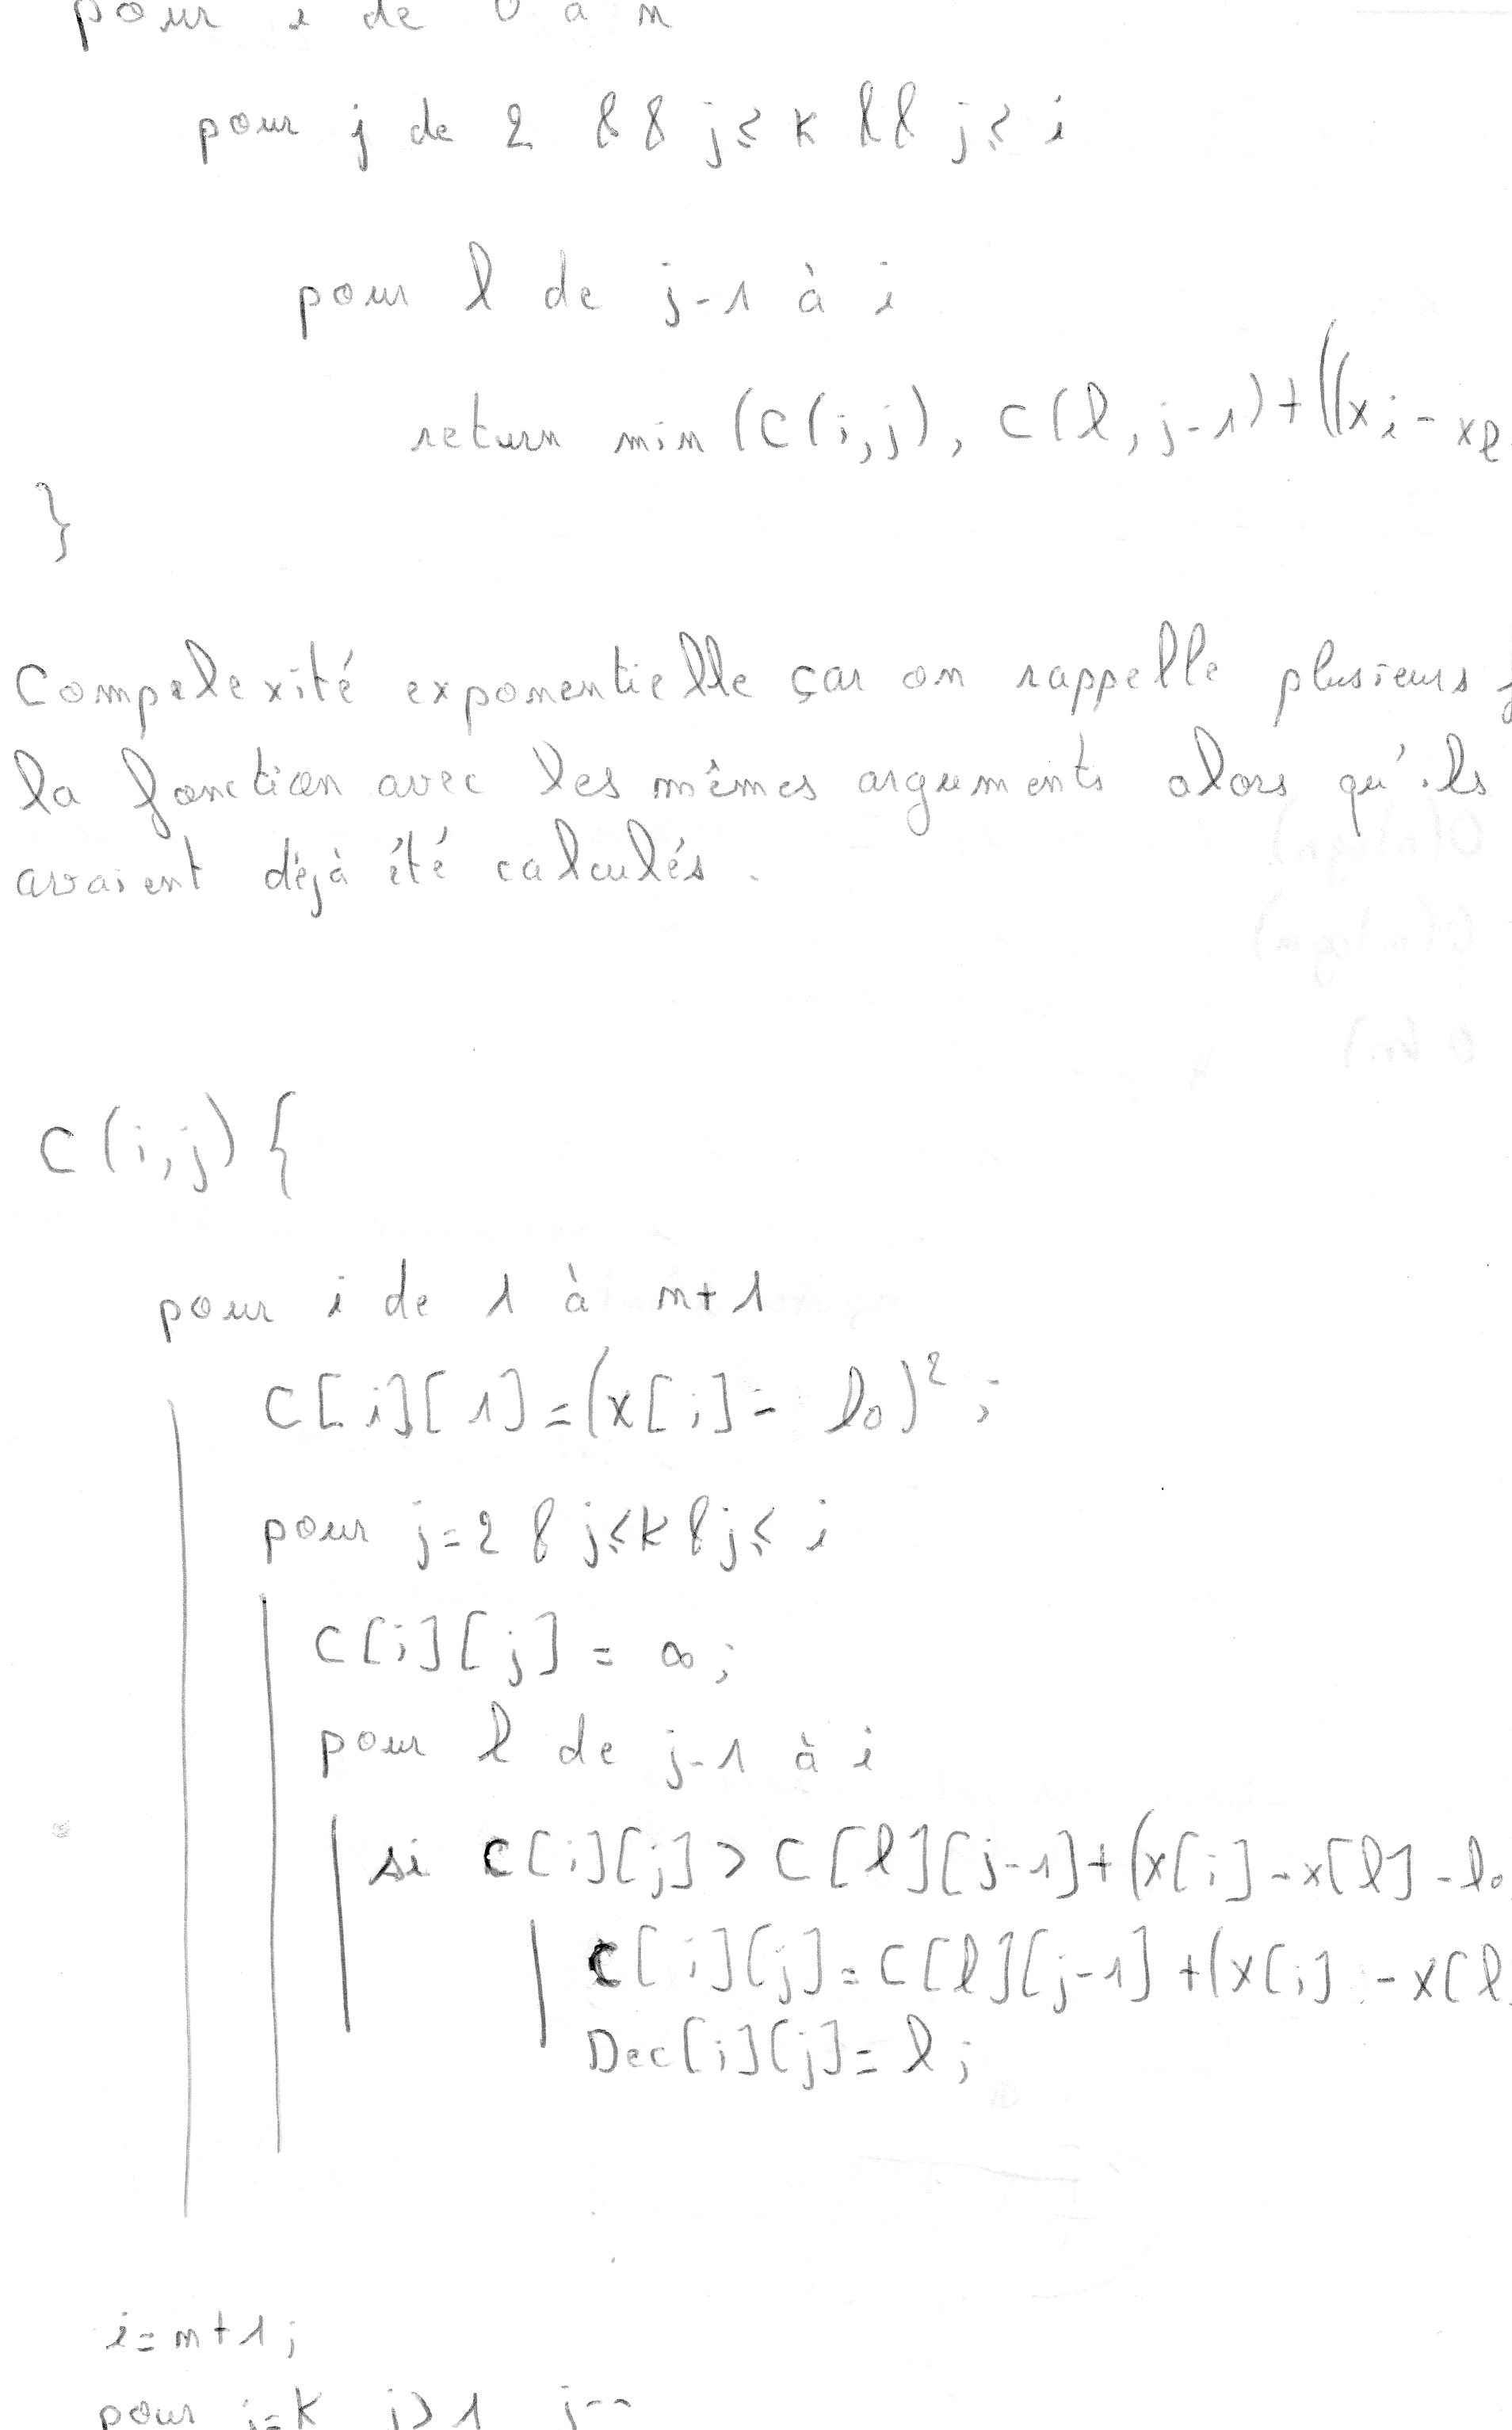 pour i de 0 à n
pour j de 2 && j≤k && j≤i
pour l de j-1 à i
return min (C(i,j), C(l,j-1)+((xi-xl
}
Compelexité exponentielle çar on rappelle plusieurs
la fonction avec les mêmes arguments alors qu'ils
avaient déjà été calculés.
C(i,j){
pour i de 1 à n+1
C[i][1]=(x[i]-l0)²;
pour j=2 & j≤k & j≤i
C[i][j]=∞;
pour l de j-1 à i
si C[i][j]>C[l][j-1]+(x[i]-x[l]-l0
C[i][j]=C[l][j-1]+(x[i]-x[l
Dec[i][j]=l;
i=n+1;
pour j=k j>1 j--